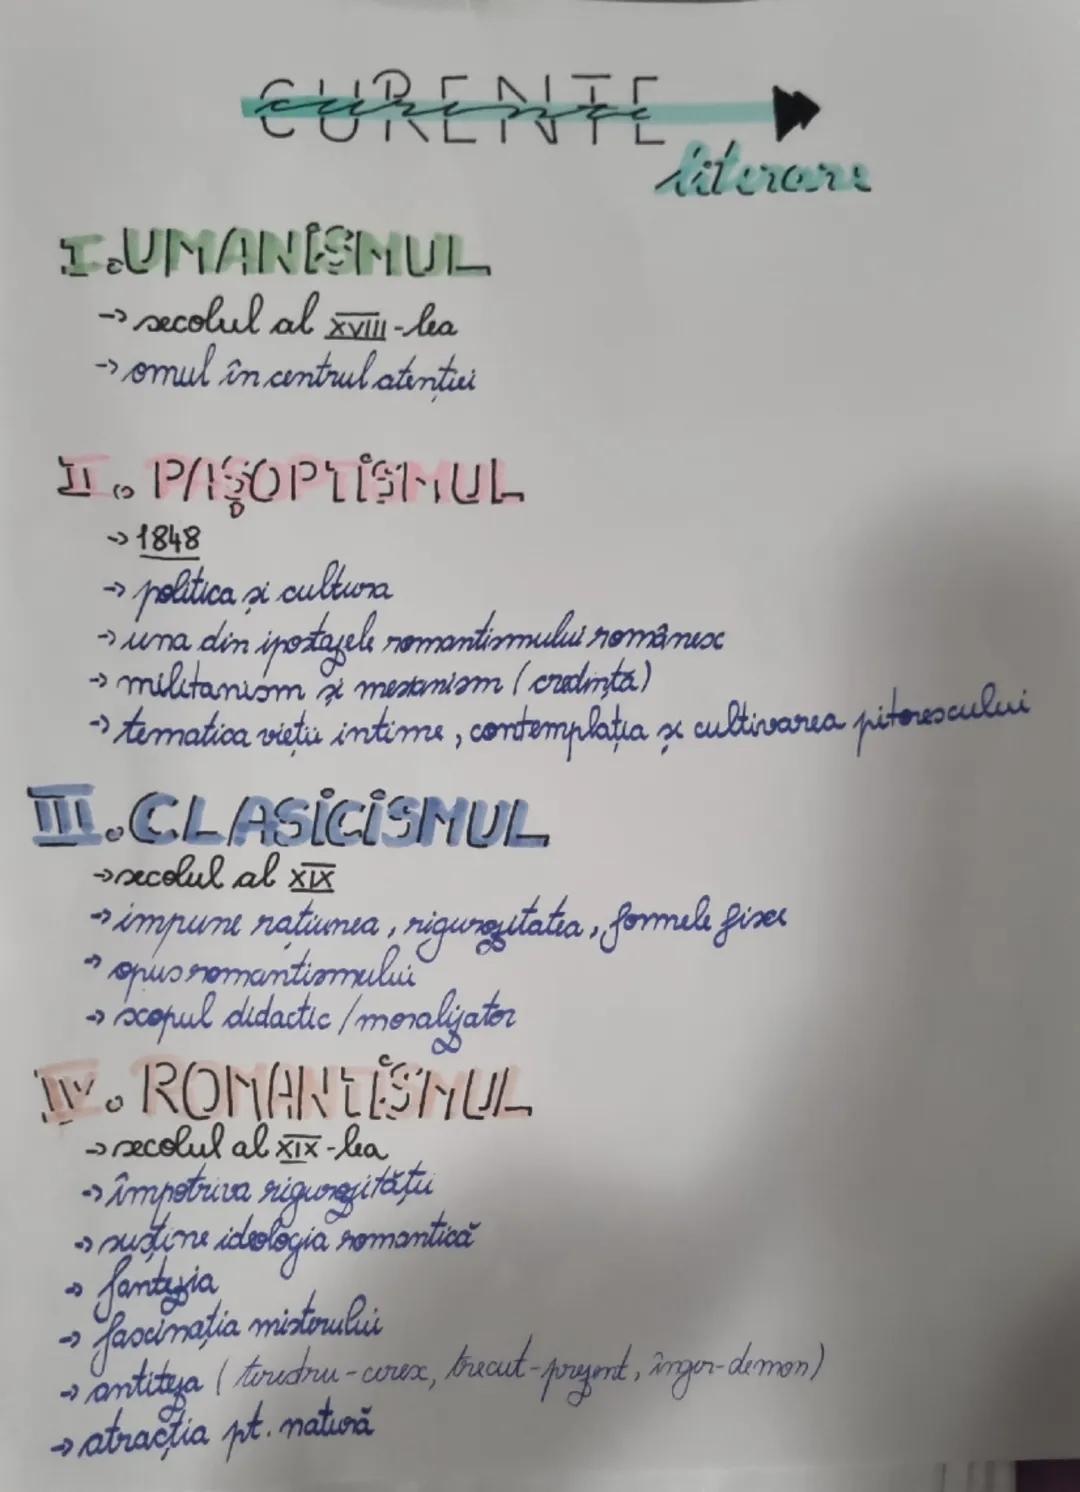 CURENTE
literare
I. UMANISMUL
→ secolul al XVIII-lea
→ omul în centrul atenției
II. PAȘOPTISMUL
→ 1848
→ politica și cultura
→ una din ipostazele romantismului românesc
→ militanism și mesianism (credința)
→ tematica vieții intime, contemplația și cultivarea pitorescului
III. CLASICISMUL
→ secolul al XIX
→ impune rațiunea, rigurozitatea, formele fixe
→ opus romantismului
→ scopul didactic / moralizator
IV. ROMANTISMUL
→ secolul al XIX-lea
→ împotriva rigurozității
→ susține ideologia romantică
→ fantezia
→ fascinația misterului
→ antiteza (terestru-ceresc, trecut-prezent, înger-demon)
→ atracția pt. natură